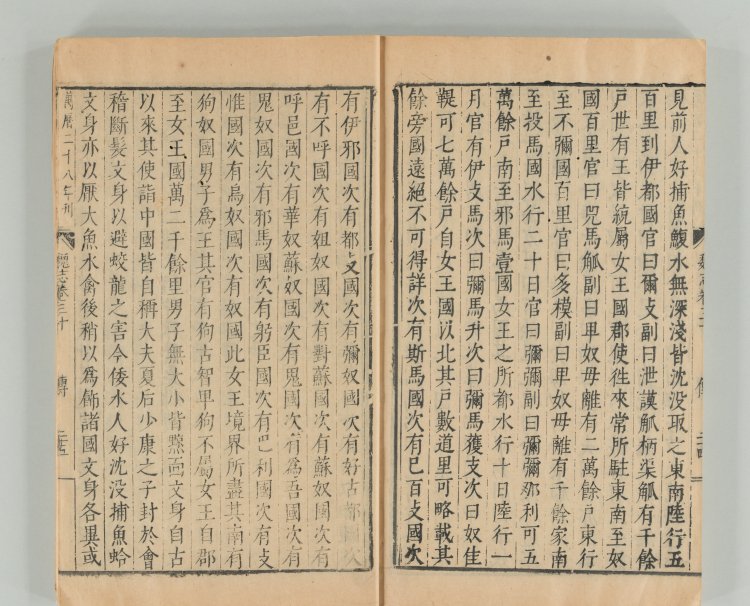 見前人好捕魚鰒水無深淺皆沈没取之東南陸行五
百里到伊都國官曰爾支副曰泄謨觚柄渠觚有千餘
戶世有王皆統屬女王國郡使往來常所駐東南至奴
國百里官曰兕馬觚副曰卑奴毋離有二萬餘戶東行
至不彌國百里官曰多模副曰卑奴毋離有千餘家南
至投馬國水行二十日官曰彌彌副曰彌彌那利可五
萬餘戶南至邪馬壹國女王之所都水行十日陸行一
月官有伊支馬次曰彌馬升次曰彌馬獲支次曰奴佳
鞮可七萬餘戶自女王國以北其戶數道里可略載其
餘旁國遠絕不可得詳次有斯馬國次有巳百支國次
有伊邪國次有都支國次有彌奴國次有好古都國次
有不呼國次有姐奴國次有對蘇國次有蘇奴國次有
呼邑國次有華奴蘇奴國次有鬼國次有爲吾國次有
鬼奴國次有邪馬國次有躬臣國次有巴利國次有支
惟國次有烏奴國次有奴國此女王境界所盡其南有
狗奴國男子爲王其官有狗古智卑狗不屬女王自郡
至女王國萬二千餘里男子無大小皆黥面文身自古
以來其使詣中國皆自稱大夫夏后少康之子封於會
稽斷髮文身以避蛟龍之害今倭水人好沈没捕魚蛤
文身亦以厭大魚水禽後稍以爲飾諸國文身各異或
萬曆二十八年刊 魏志卷三十 傳